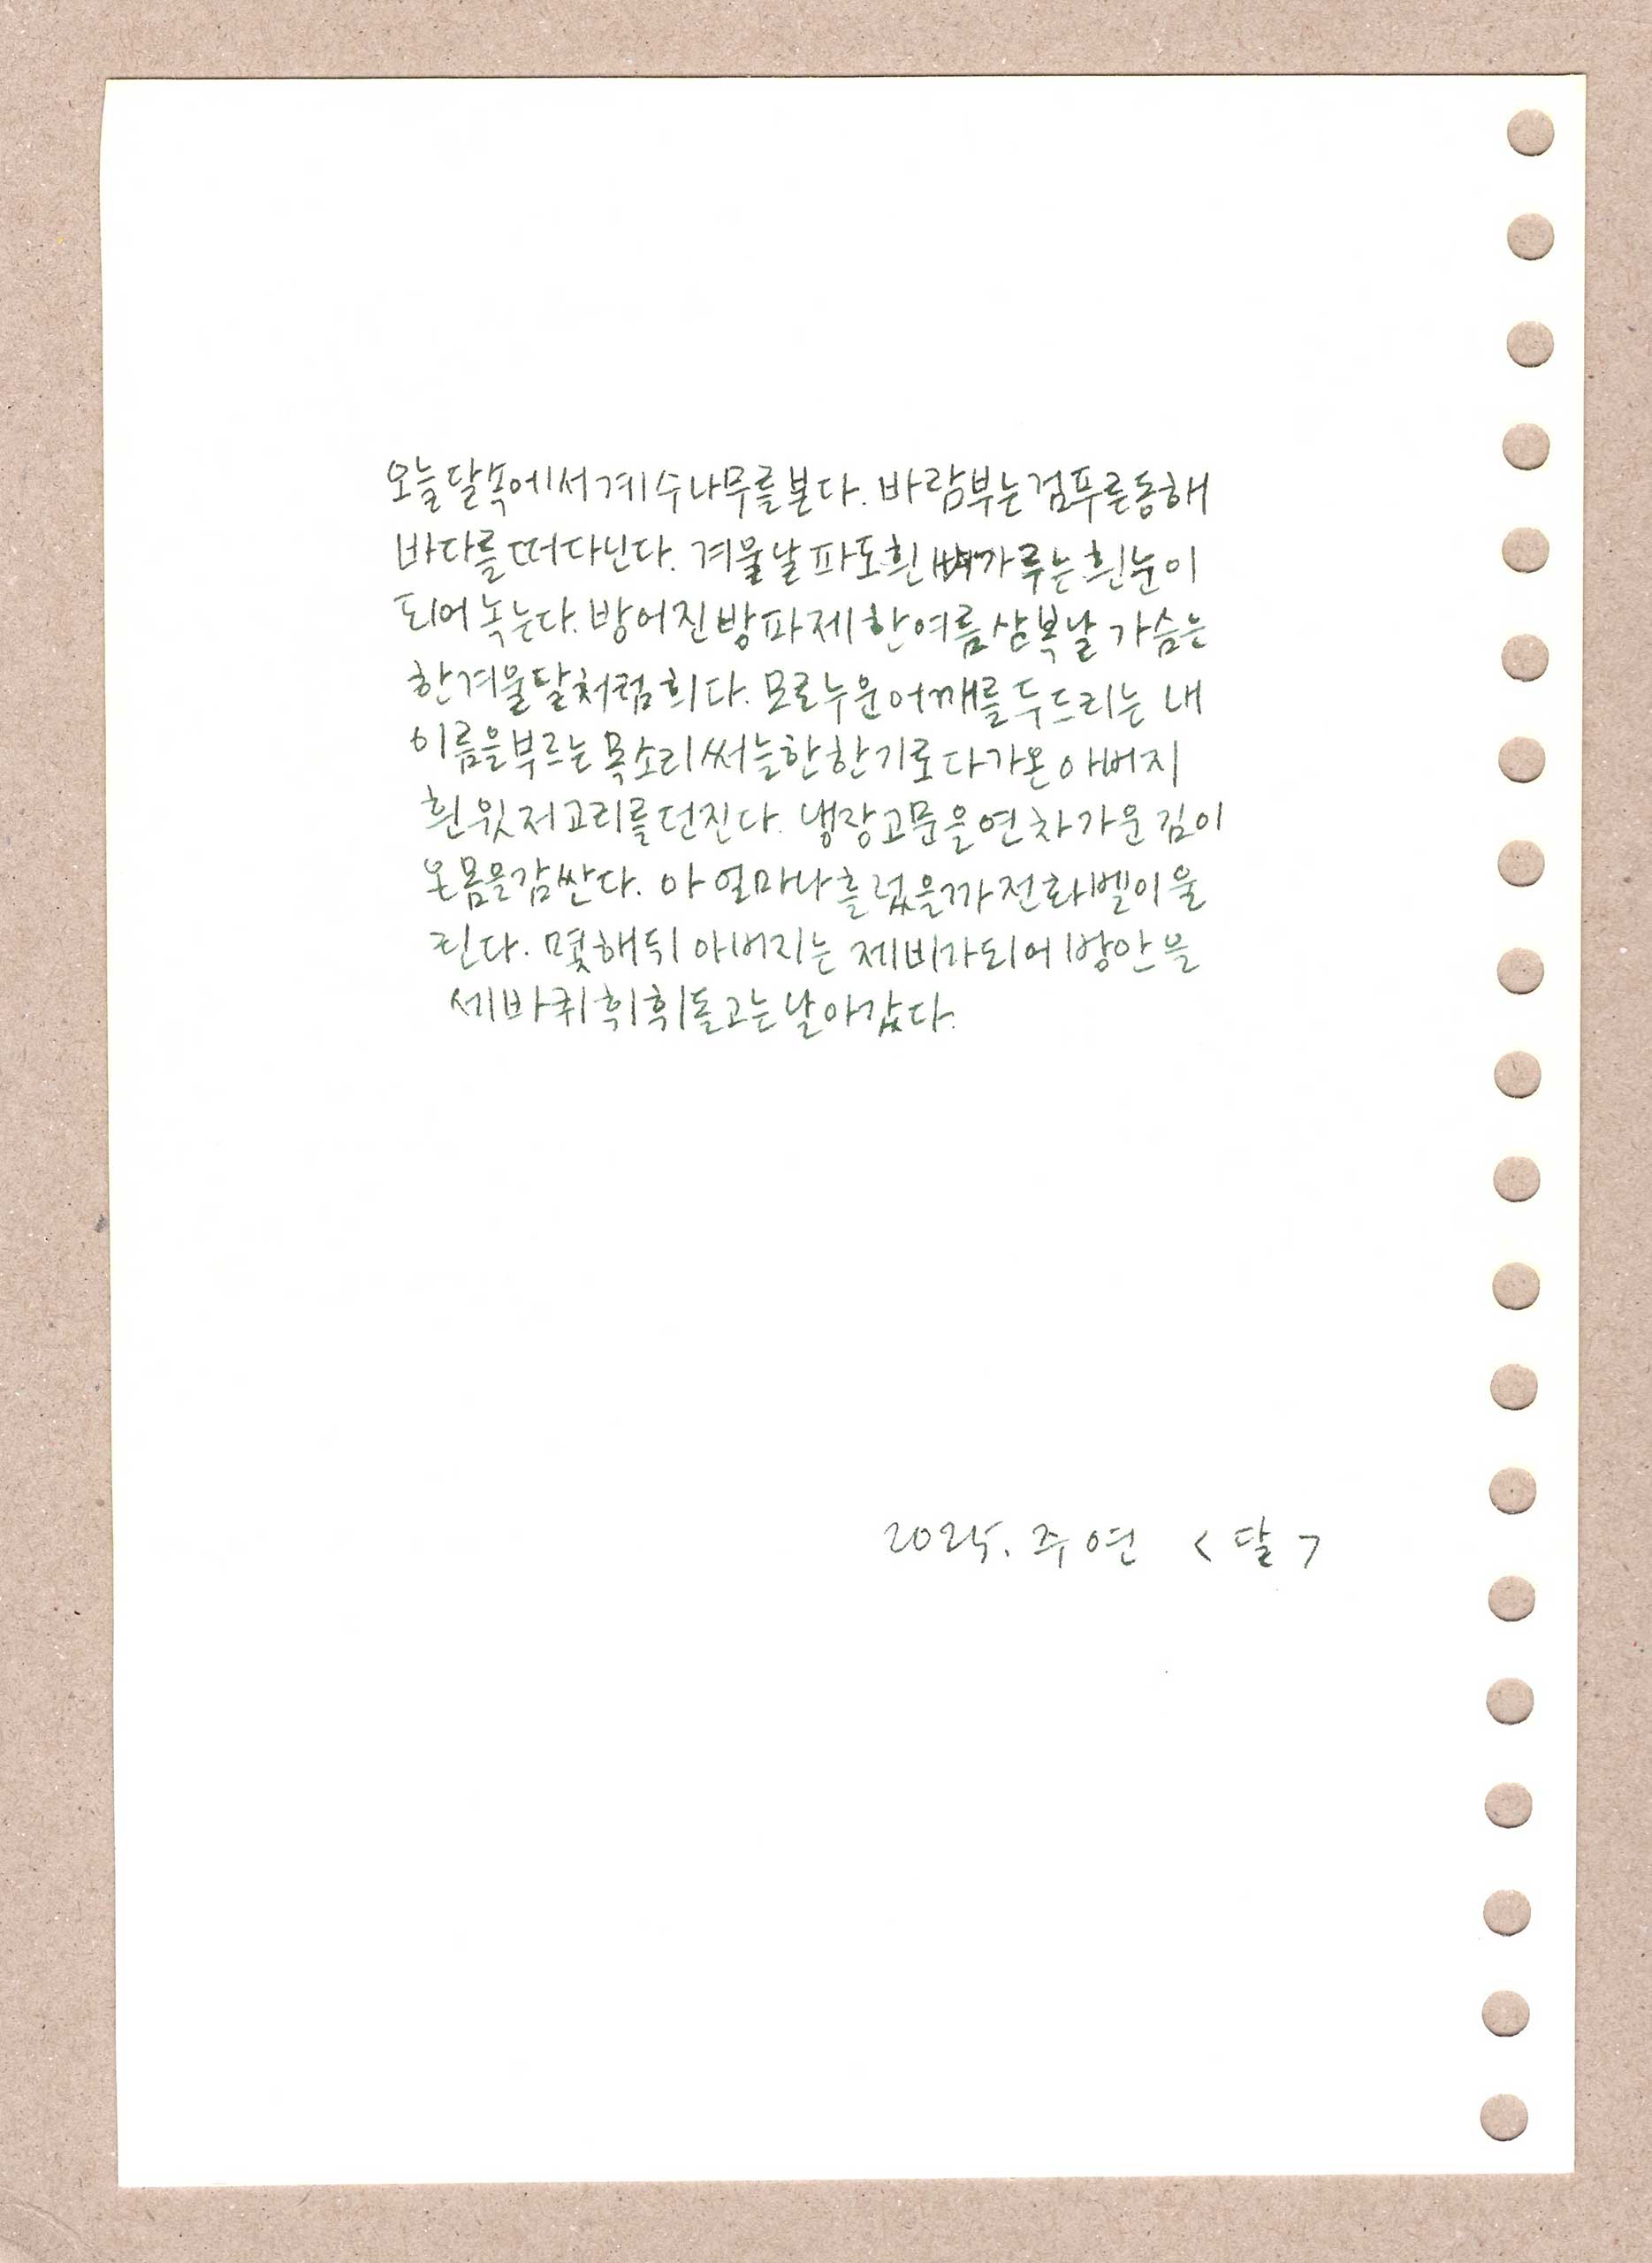 오늘달속에서계수나무를본다. 바람부는검푸른동해
바다를떠다닌다. 겨울날파도흰뼈가루는흰눈이
되어녹는다. 방어진방파제한여름삼복날 가슴은
한겨울달처럼희다. 모로누운어깨를두드리는 내
이름을부르는목소리써늘한한기로다가온아버지
흰윗저고리를던진다. 냉장고문을연차가운김이
온몸을감싼다. 아얼마나흘렀을까전화벨이울
린다. 몇해뒤 아버지는 제비가되어방안을
세바퀴휙휙돌고는날아갔다.
2025. 주연 <달>